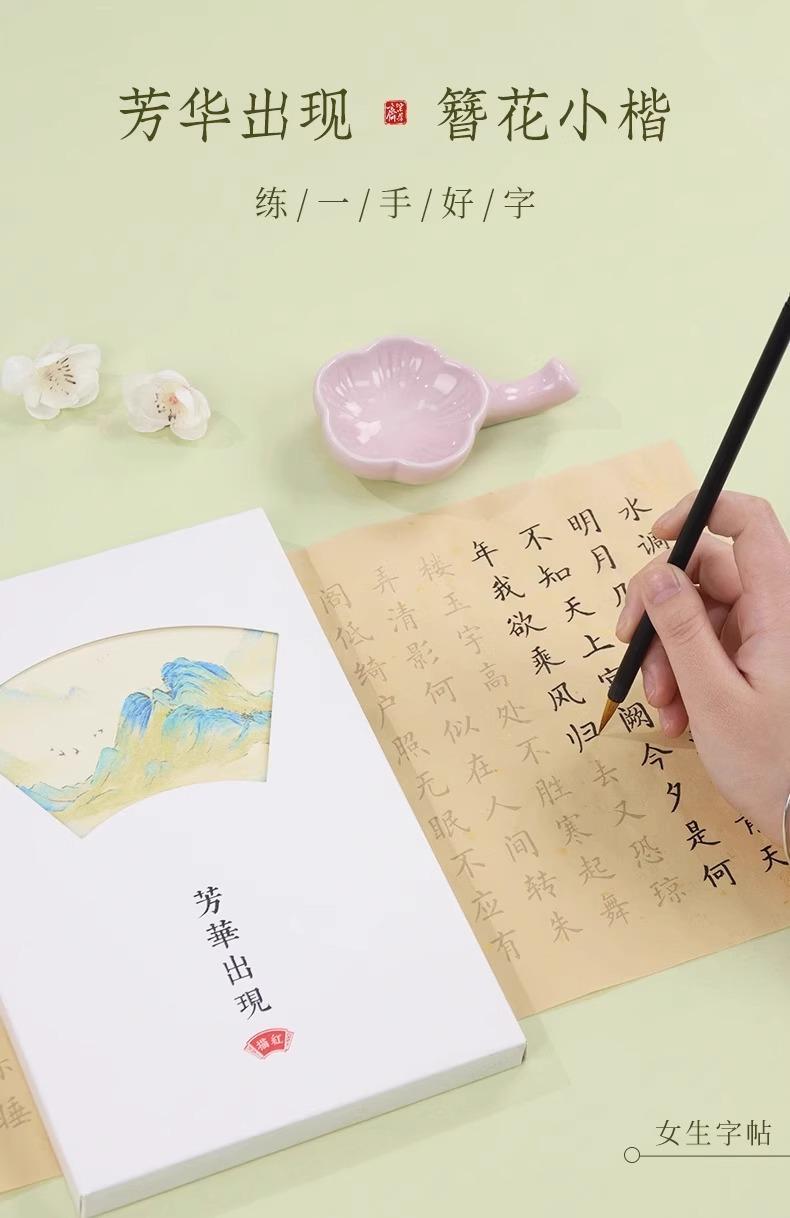 芳华出现 簪花小楷
练/一/手/好/字
水调
明月几
不知天上宫阙今夕是何
年我欲乘风归去又恐琼
楼玉宇高处不胜寒起舞
弄清影何似在人间转朱
阁低绮户照无眠不应有
天
芳華出現
描红
睡
女生字帖